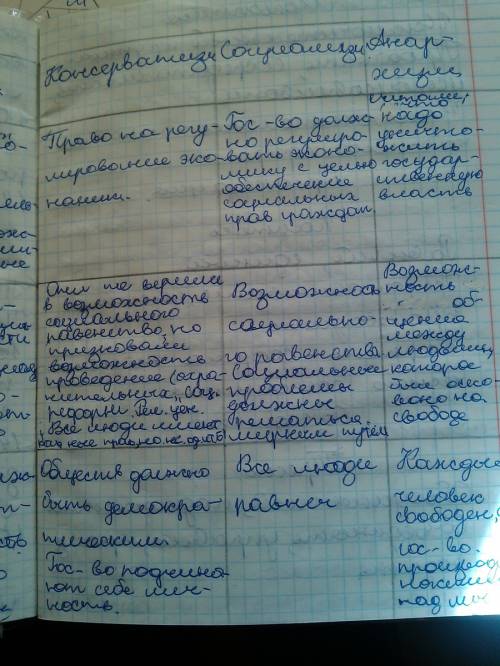 Консерватизм Социализм Анар-
хизм
Право на регу-
лирование эко-
номики.
Гос-во долж-
но регулиро-
вать эконо-
мику с целью
обеспечение
социальных
прав граждан
считали, что
надо
уничто-
жить
государ-
ственную
власть
Они не верили
в возможность
социального
равенство, но
признавали
возможность
проведение (огра-
нительных) соц.
реформ. Рел. цен.
Все люди имеют
равные права, но не
Возможность
социально-
го равенства
Социальные
проблемы
должны
решаться
мирным путём
Возмож-
ность
об-
щения
между
людьми,
которая
была осно-
вана на
свободе
Общество должно
быть демокра-
тическим.
Гос-во подчиня-
ют себе лич-
ность.
Все люди
равны
Каждый
человек
свободен,
гос-во
производ
насилие
над